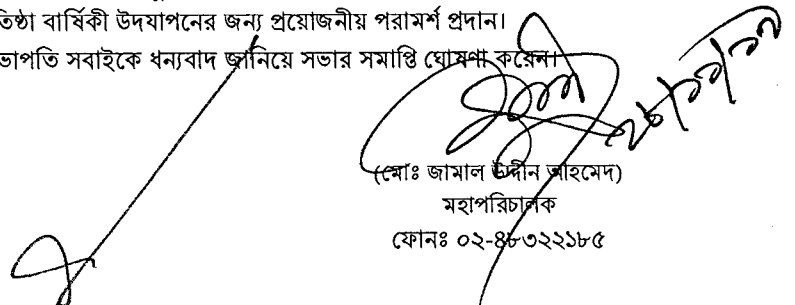 তিষ্ঠা বার্ষিকী উদযাপনের জন্য প্রয়োজনীয় পরামর্শ প্রদান।
ভাপতি সবাইকে ধন্যবাদ জানিয়ে সভার সমাপ্তি ঘোষণা করেন।
(মোঃ জামাল উদ্দীন আহমেদ)
মহাপরিচালক
ফোনঃ ০২-৪৮৩২২১৮৫